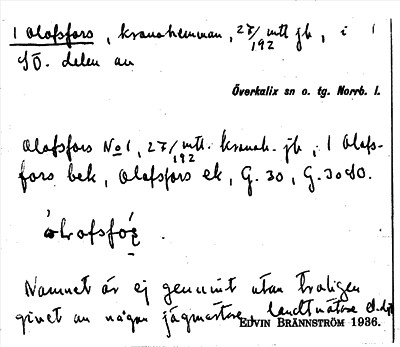 1 Olofsfors, kronohemman, 27/192 mtl jb, i
SO. delen av
Överkalix sn o. tg. Norrb. l.
Olofsfors No 1, 27/192 mtl. kronoh. jb, 1 Olofs-
fors bek, Olofsfors ek, G. 30, G.
Namnet är ej genuint utan troligen
givet av någon jägmästare, lantmätare el. dyl.
EDVIN BRÄNNSTRÖM 1936.